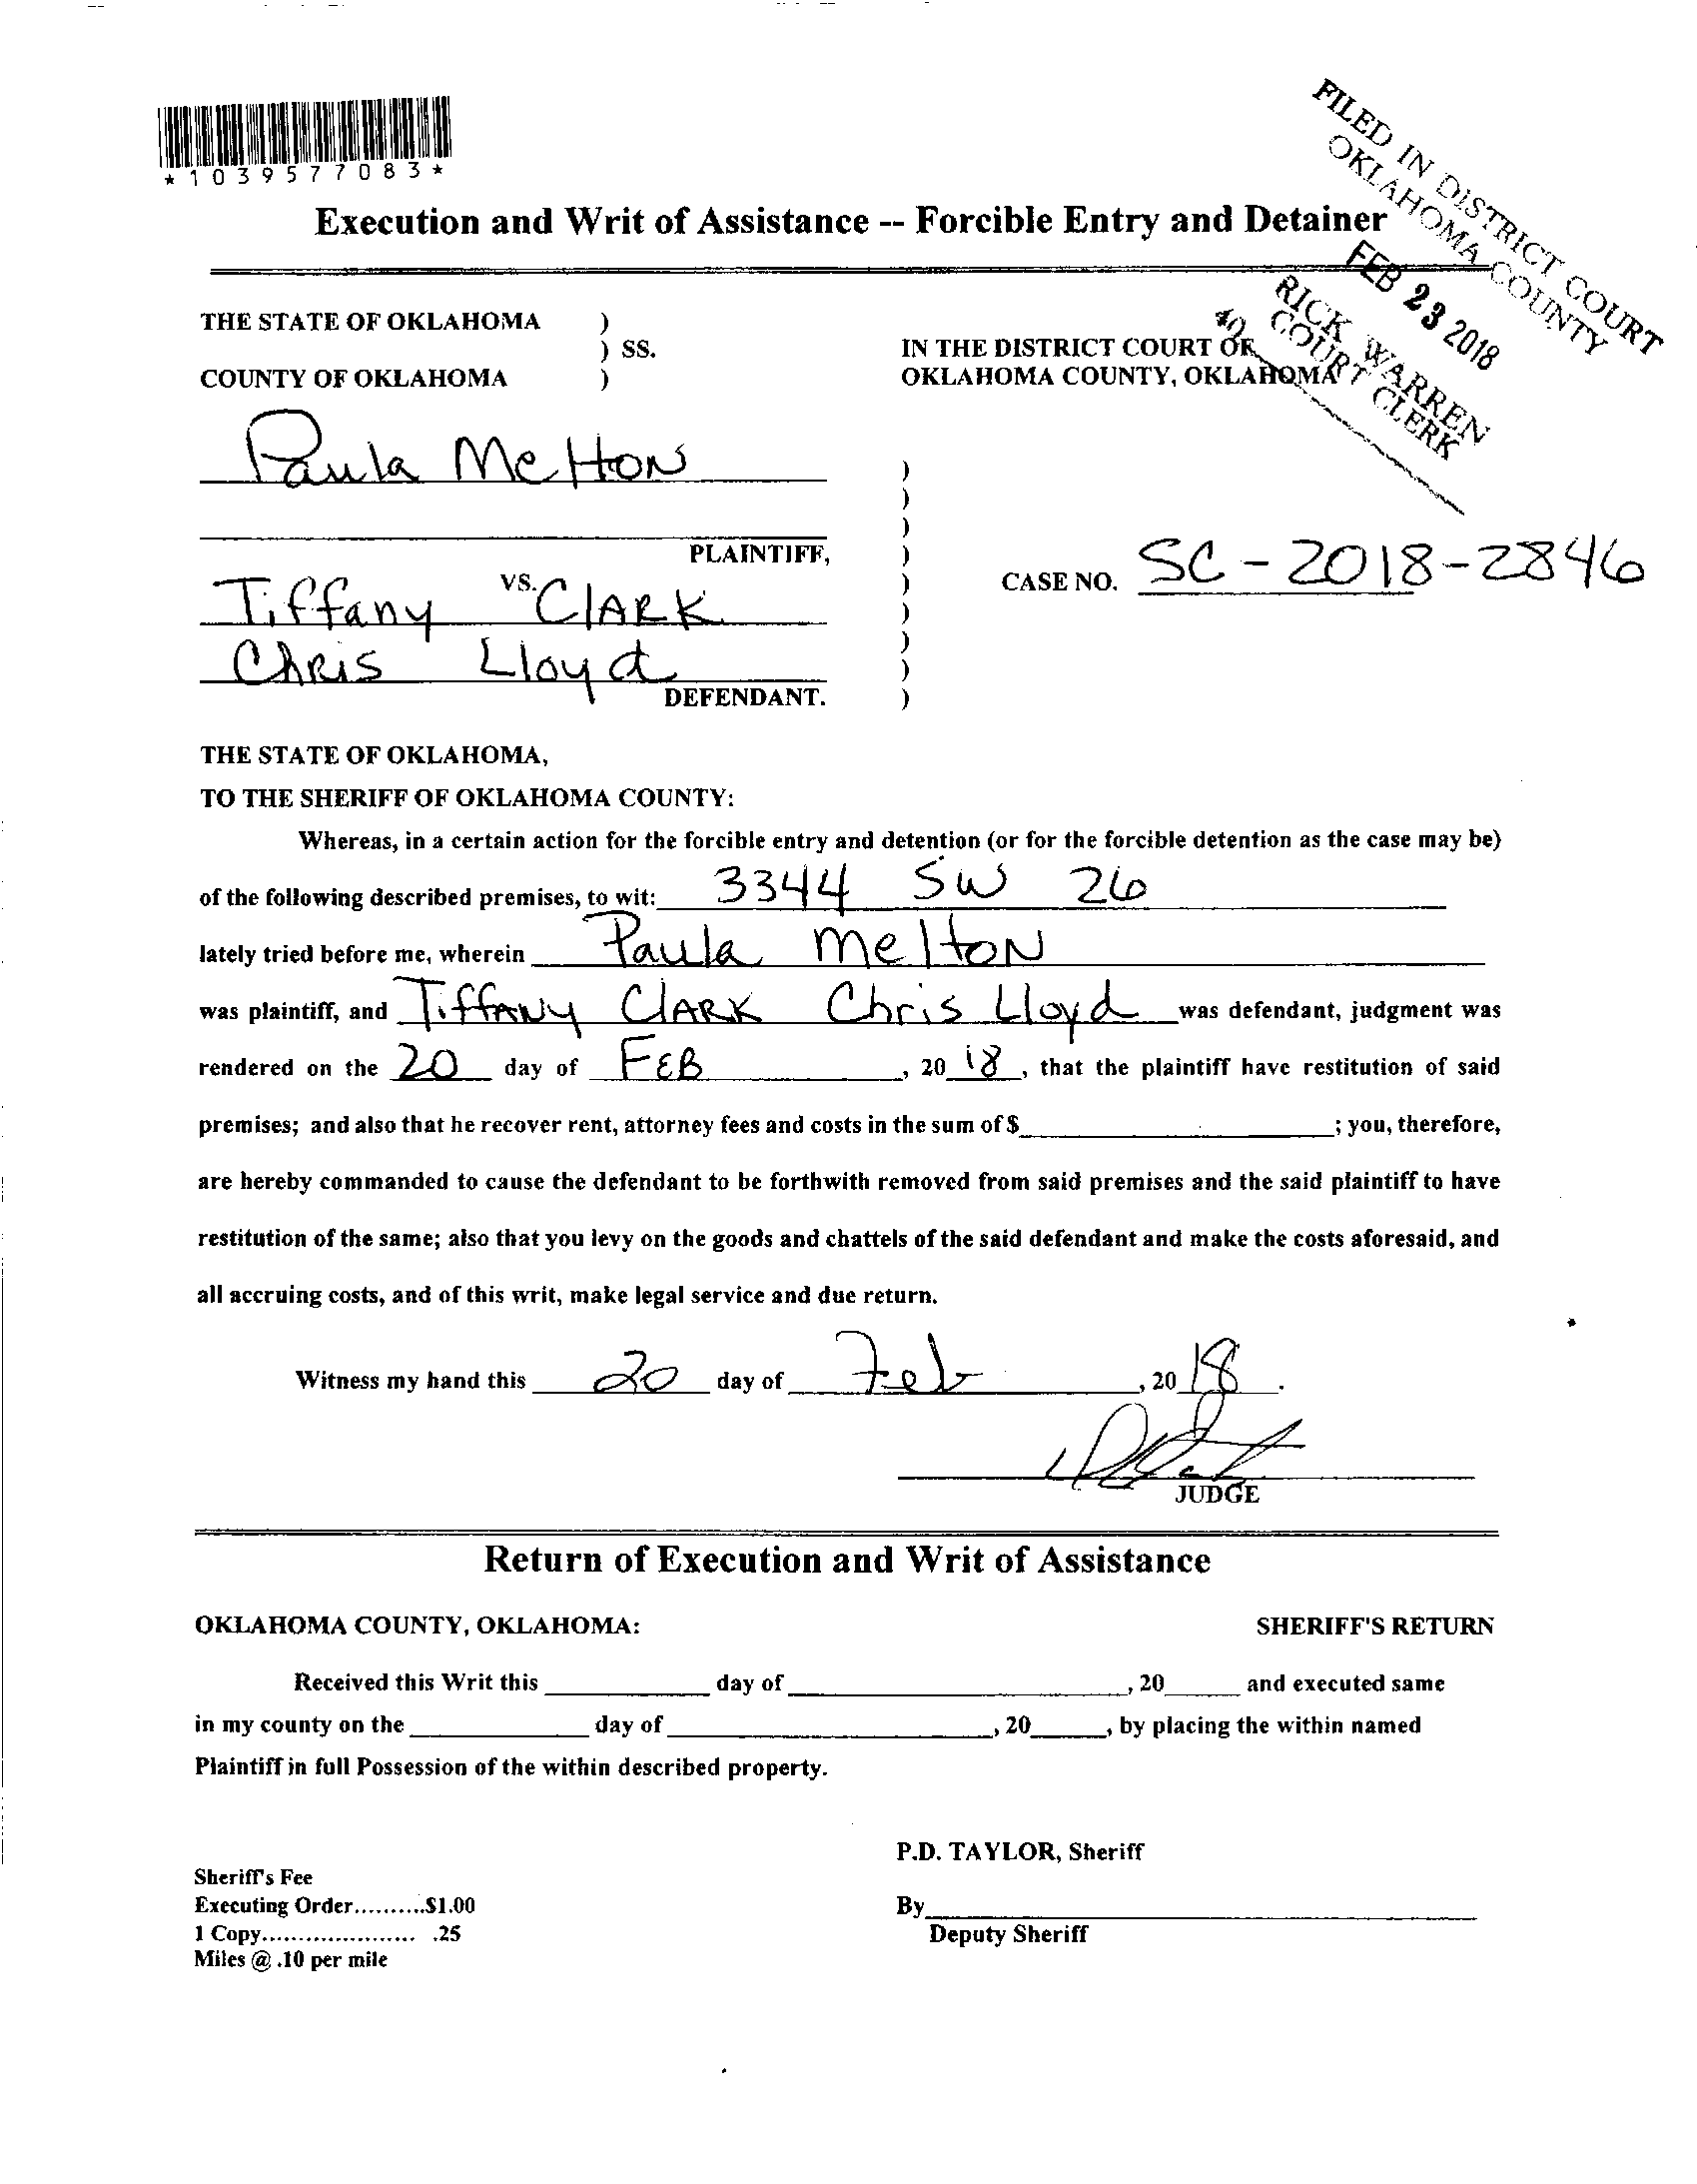 *1039577083*
FILED IN DISTRICT COURT
OKLAHOMA COUNTY
FEB 23 2018
RICK WARREN
COURT CLERK
40
Execution and Writ of Assistance -- Forcible Entry and Detainer
THE STATE OF OKLAHOMA )
) SS.
COUNTY OF OKLAHOMA )
IN THE DISTRICT COURT OF
OKLAHOMA COUNTY, OKLAHOMA
Paula Melton
PLAINTIFF,
VS.
Tiffany Clark
Chris Lloyd
DEFENDANT.
)
)
)
)
)
)
)
)
)
CASE NO. SC-2018-2846
THE STATE OF OKLAHOMA,
TO THE SHERIFF OF OKLAHOMA COUNTY:
Whereas, in a certain action for the forcible entry and detention (or for the forcible detention as the case may be)
of the following described premises, to wit: 3344 SW 26
lately tried before me, wherein Paula Melton
was plaintiff, and Tiffany Clark Chris Lloyd was defendant, judgment was
rendered on the 20 day of FEB, 2018, that the plaintiff have restitution of said
premises; and also that he recover rent, attorney fees and costs in the sum of $____; you, therefore,
are hereby commanded to cause the defendant to be forthwith removed from said premises and the said plaintiff to have
restitution of the same; also that you levy on the goods and chattels of the said defendant and make the costs aforesaid, and
all accruing costs, and of this writ, make legal service and due return.
Witness my hand this 20 day of Feb, 2018.
JUDGE
Return of Execution and Writ of Assistance
OKLAHOMA COUNTY, OKLAHOMA: SHERIFF'S RETURN
Received this Writ this ____ day of ____, 20____ and executed same
in my county on the ____ day of ____, 20____, by placing the within named
Plaintiff in full Possession of the within described property.
P.D. TAYLOR, Sheriff
Sheriff's Fee
Executing Order..........$1.00
1 Copy..................... .25
Miles @ .10 per mile
By____
Deputy Sheriff